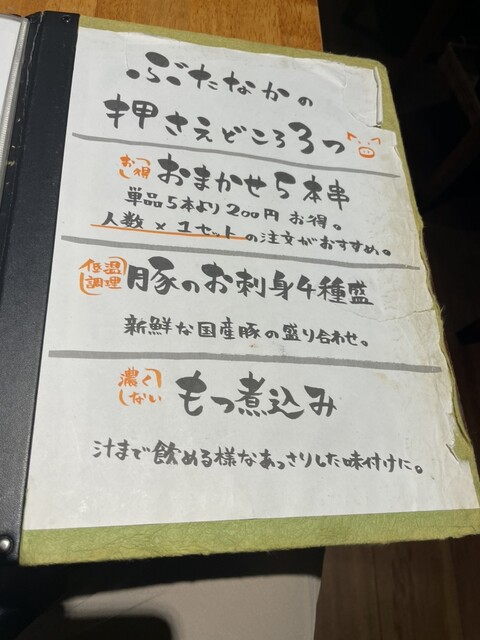 ぶたなかの
押さえどころ3つ
お得
し
おまかせ5本串
単品5本より200円お得。
人数×1セットの注文がおすすめ。
低温
調理
豚のお刺身4種盛
新鮮な国産豚の盛り合わせ。
濃く
しない
もつ煮込み
汁まで飲める様なあっさりした味付けに。